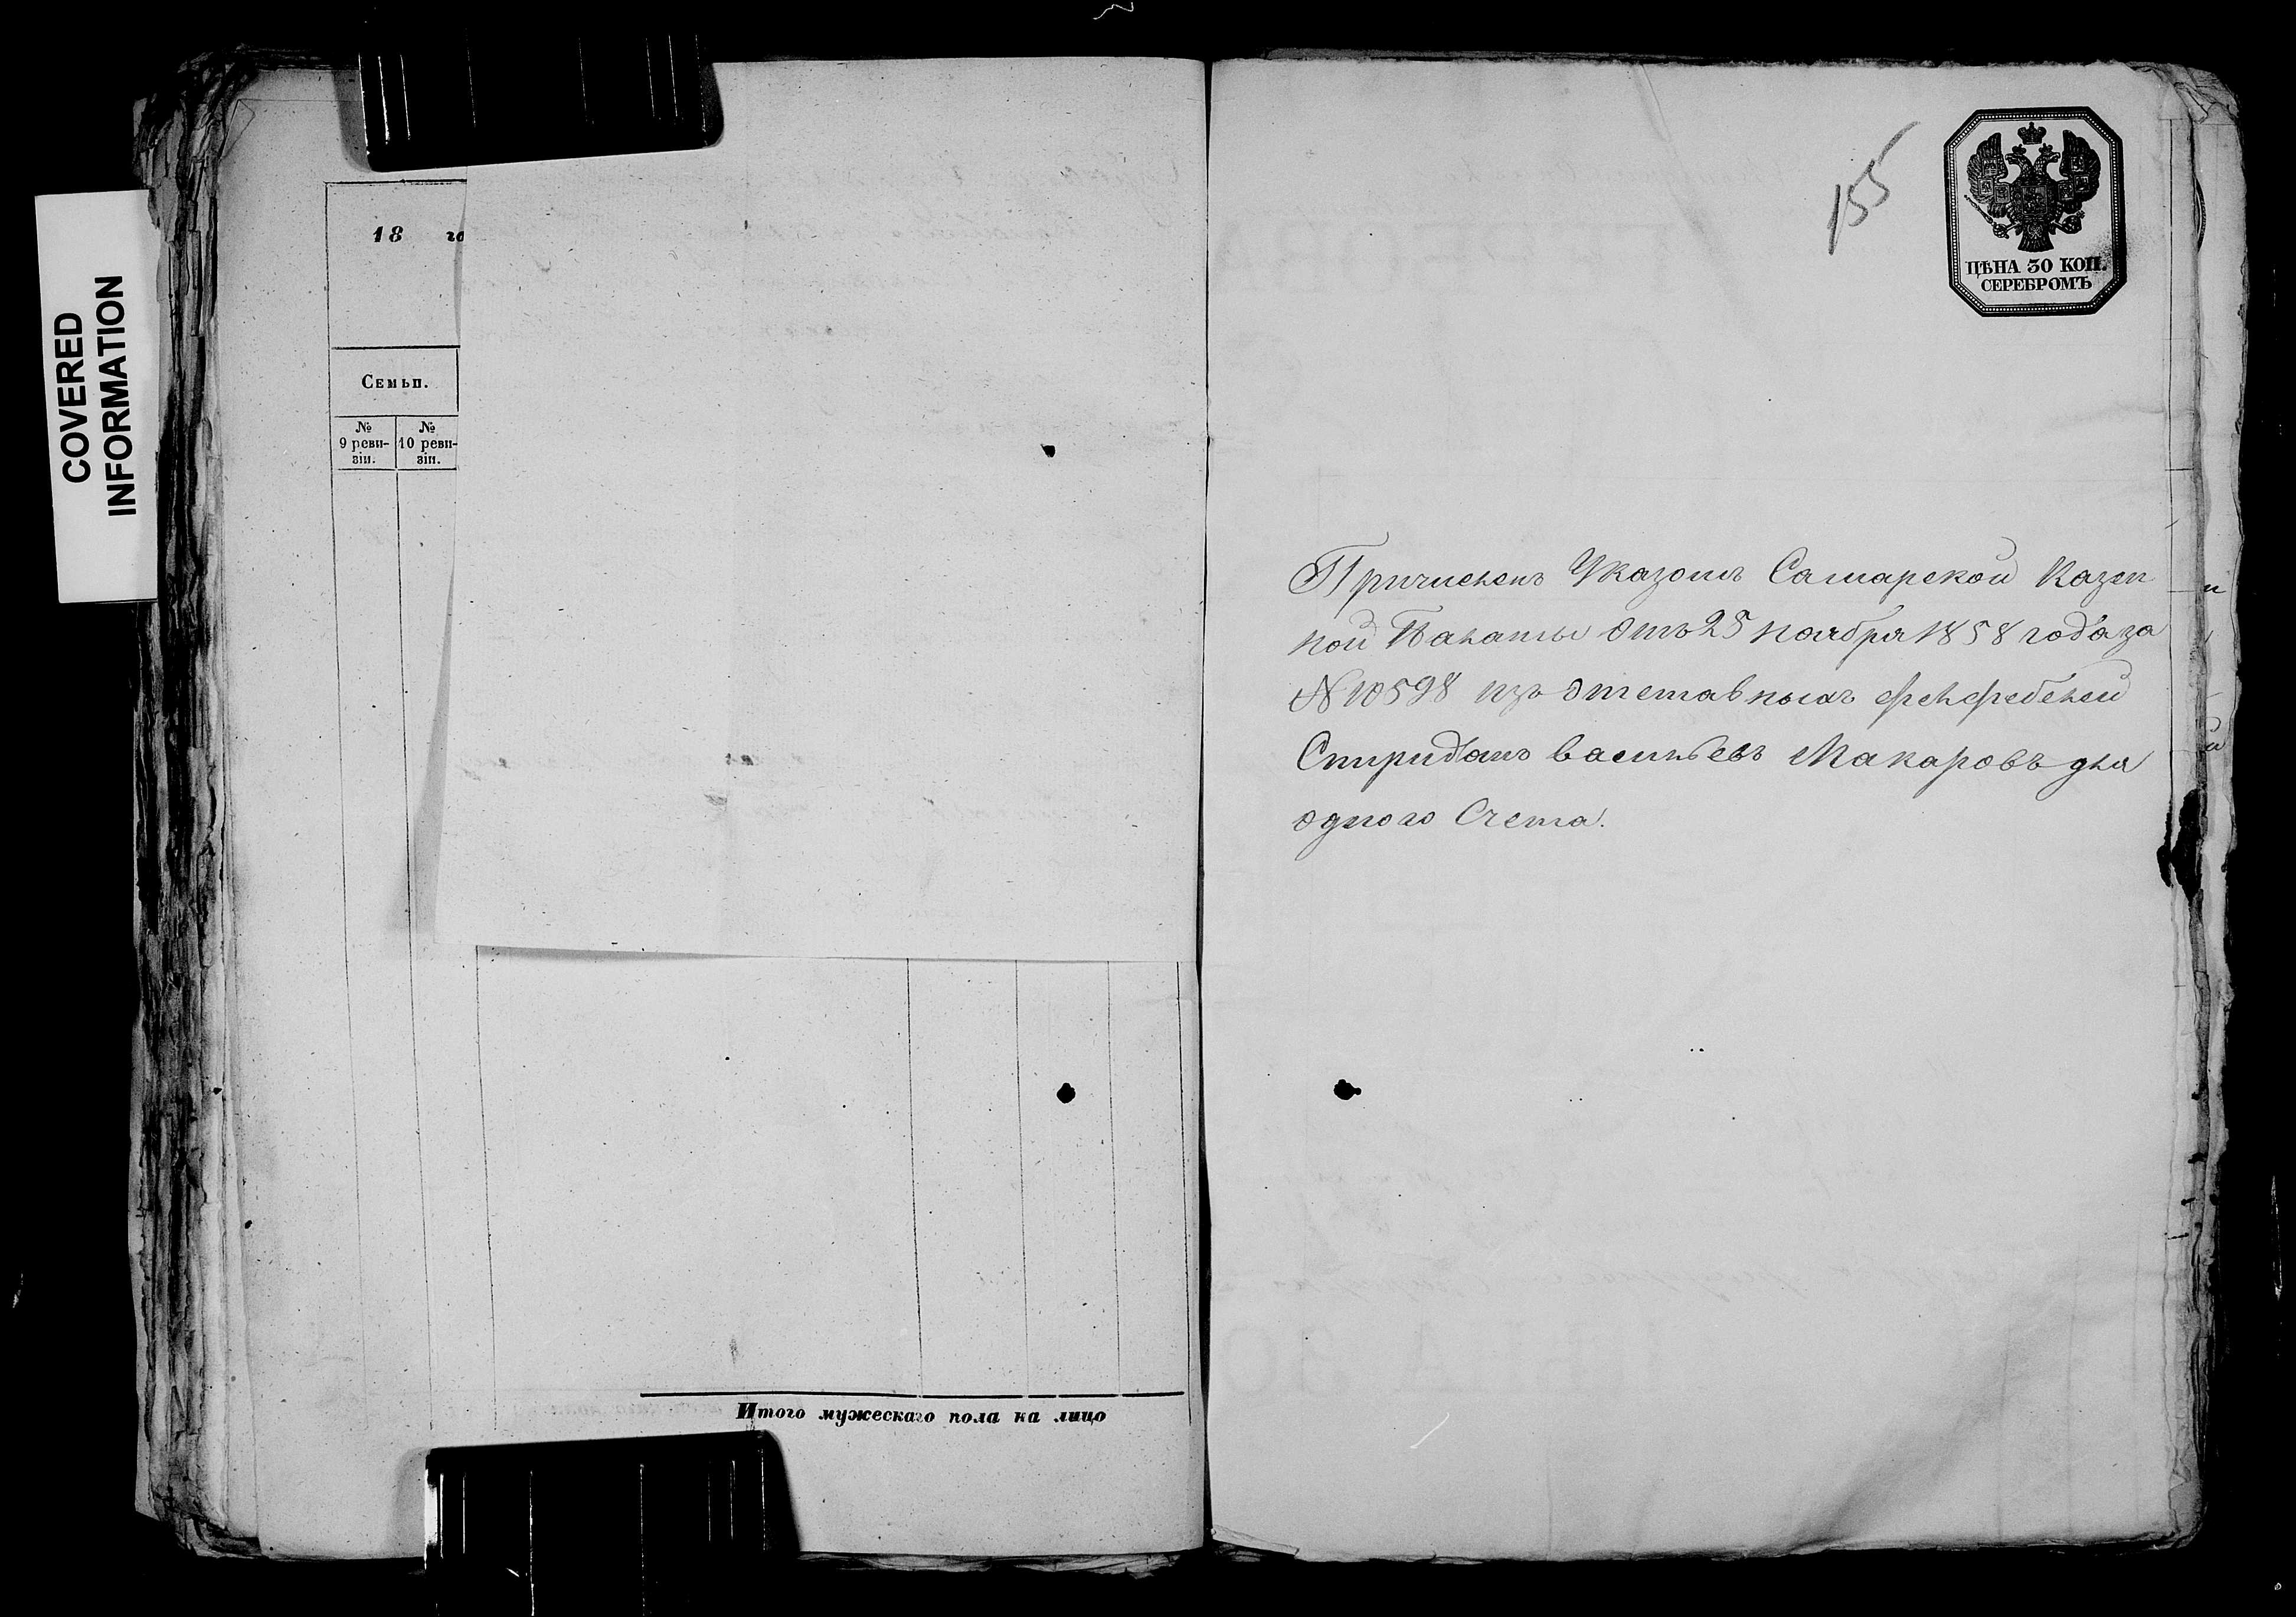 COVERED
INFORMATION
18 го
Семьи.
№ 9 реви-зіи.
№ 10 реви-зіи.
Итого мужескаго пола на лицо
155
ЦѢНА 30 КОП.
СЕРЕБРОМЪ
Причисленъ Указомъ Самарской Казен
ной Палаты Отъ 25 ноября 1858 года за
№ 10598 изъ Отставныхъ фельфебелей
Спиридонъ васильевъ Макаровъ для
одного Счета.